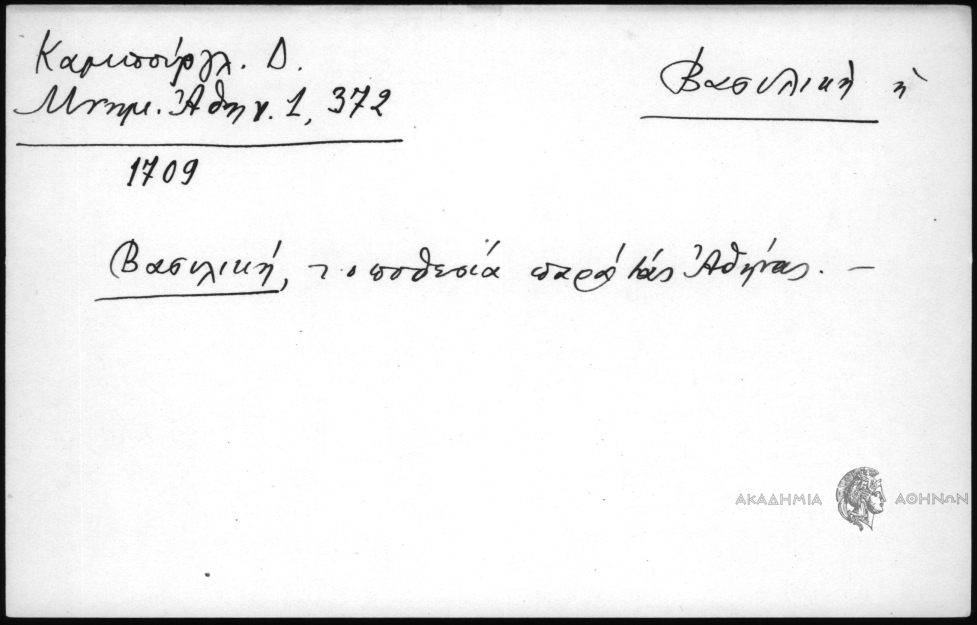 Καμπούργλ. Δ.
Μνημ. Ἀθην. 1, 372
1709
Βασιλικὴ ἡ
Βασιλική, τοποθεσία παρὰ τὰς Ἀθήνας. —
ΑΚΑΔΗΜΙΑ ΑΘΗΝΩΝ